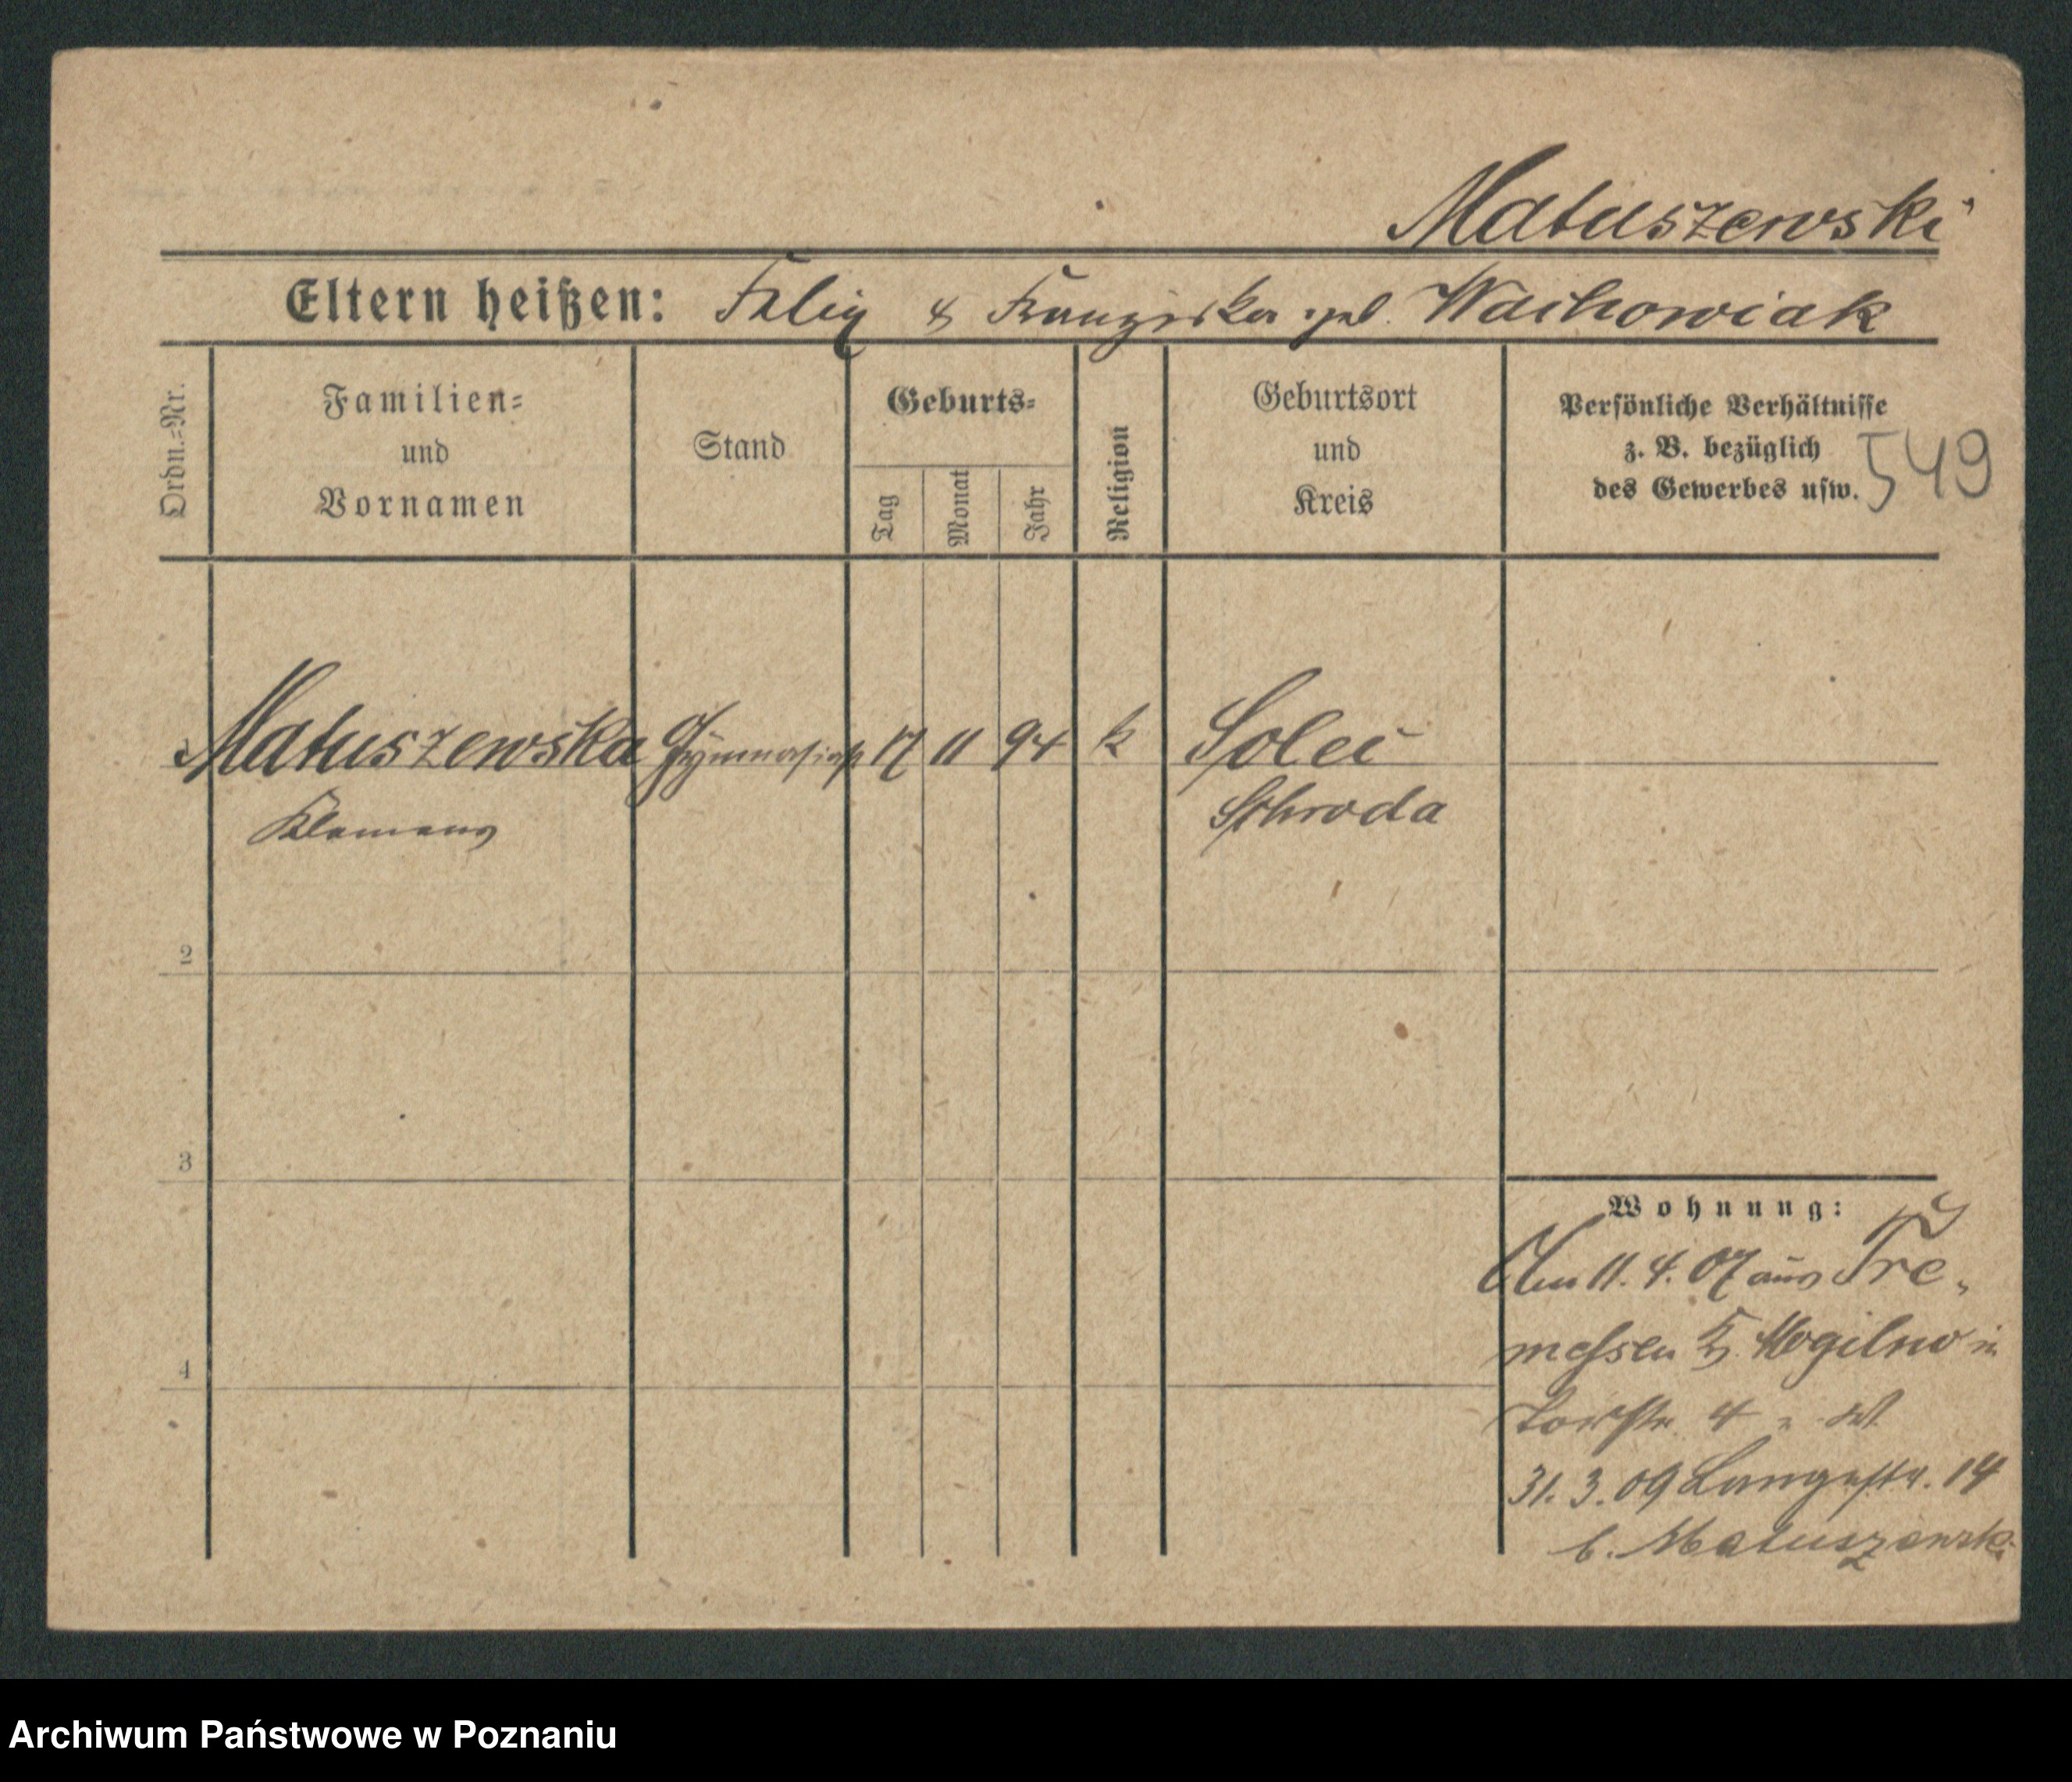 Matuszewski
Eltern heißen: Felix & Franziska geb. Wachowiak
Ordn.-Nr.
Familien-
und
Vornamen
Stand
Geburts-
Tag
Monat
Jahr
Religion
Geburtsort
und
Kreis
Persönliche Verhältnisse
z. B. bezüglich
des Gewerbes usw.
549
Matuszewska Gymnasiast 17 11 94 k Solec
Klemens Schroda
2
3
4
Wohnung:
Am 11. 4. 07 aus Tre-
messen Kr. Mogilno in
4
31. 3. 09 Langestr. 14
b. Matuszewski
Archiwum Państwowe w Poznaniu